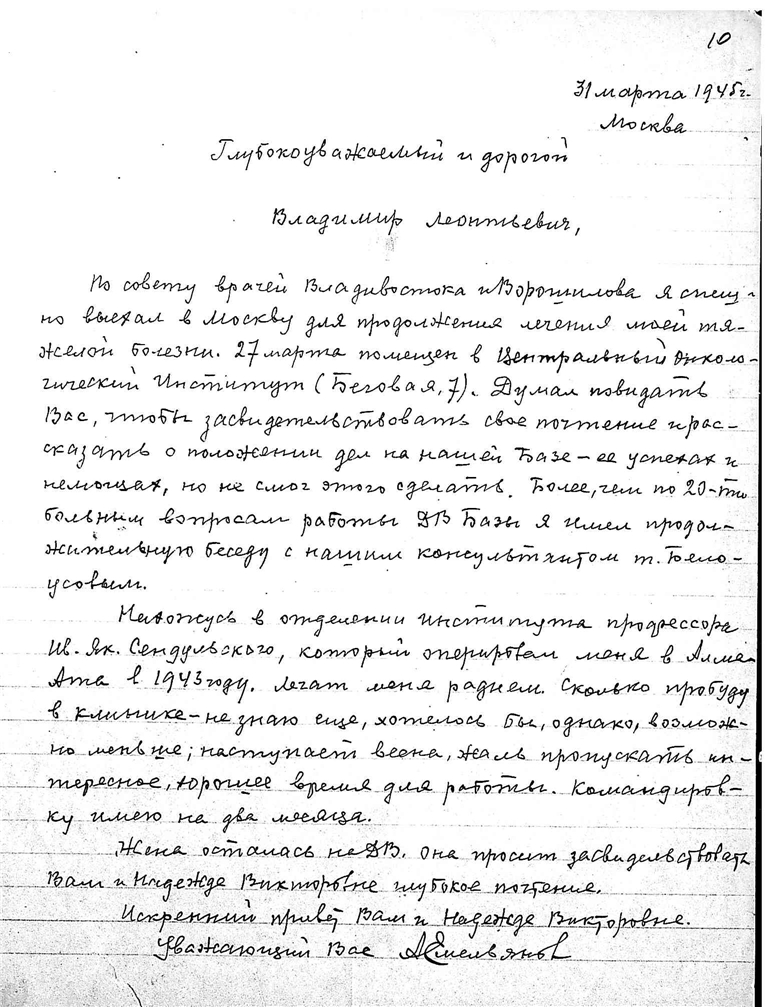 10
31 марта 1945 г.
Москва
Глубокоуважаемый и дорогой
Владимир Леонтьевич,
По совету врачей Владивостока и Ворошилова я спеш-
но выехал в Москву для продолжения лечения моей тя-
желой болезни. 27 марта помещен в Центральный Онколо-
гический Институт (Беговая, 7). Думал повидать
Вас, чтобы засвидетельствовать свое почтение и рас-
сказать о положении дел на нашей Базе – ее успехах и
немощах, но не смог этого сделать. Более, чем по 20-ти
больным вопросам работы ДВ Базы я имел продол-
жительную беседу с нашим консультантом т. Бело-
усовым.
Нахожусь в отделении института профессора
Ив. Як. Сендульского, который оперировал меня в Алма-
Ата в 1943 году. Лечат меня радием. Сколько пробуду
в клинике – не знаю еще, хотелось бы, однако, возмож-
но меньше; наступает весна, жаль пропускать ин-
тересное, хорошее время для работы. Командиров-
ку имею на два месяца.
Жена осталась на ДВ. Она просит засвидельствовать
Вам и Надежде Викторовне глубокое почтение.
Искренний привет Вам и Надежде Викторовне.
Уважающий Вас АЕмельянов